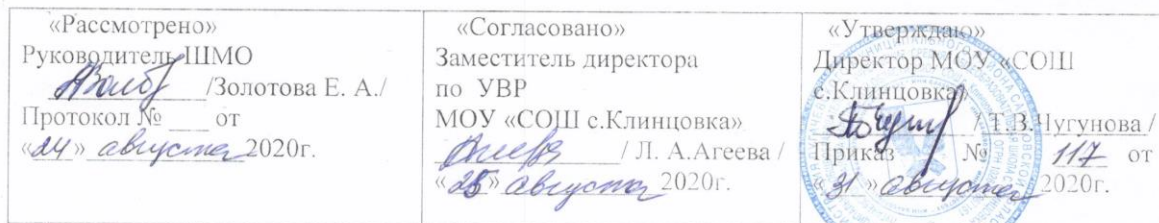 «Рассмотрено»
Руководитель ШМО
/Золотова Е. А./
Протокол № ___ от
«24» августа 2020г.
«Согласовано»
Заместитель директора
по УВР
МОУ «СОШ с.Клинцовка»
/ Л. А.Агеева /
«25» августа 2020г.
«Утверждаю»
Директор МОУ «СОШ
с.Клинцовка»
/ Т.В.Чугунова /
Приказ № 117 от
«31» августа 2020г.